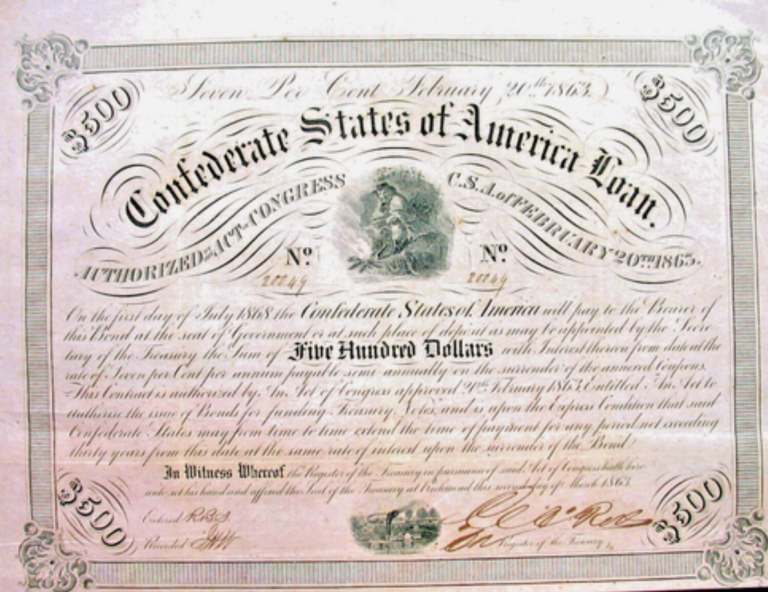 $500
Seven Per Cent February, 20th 1863.
$500
Confederate States of America Loan.
AUTHORIZED BY ACT OF CONGRESS C.S.A. of FEBRUARY 20TH 1863.
No. No.
20049 20049
On the first day of July 1868 the Confederate States of America will pay to the Bearer of
this Bond at the seat of Government or at such place of deposit as may be appointed by the Secre-
tary of the Treasury the Sum of Five Hundred Dollars with Interest thereon from date at the
rate of Seven per Cent per annum payable semi annually on the surrender of the annexed Coupons.
This Contract is authorized by An Act of Congress approved 20th February 1863 Entitled "An Act to
authorise the issue of Bonds for funding Treasury Notes, and is upon the Express Condition that said
Confederate States may from time to time extend the time of payment for any period not exceeding
thirty years from this date at the same rate of interest upon the surrender of this Bond
In Witness Whereof the Register of the Treasury in pursuance of said Act of Congress hath here-
unto set his hand and affixed the Seal of the Treasury at Richmond this second day of March 1863
$500
Entered
Recorded
Register of the Treasury
$500